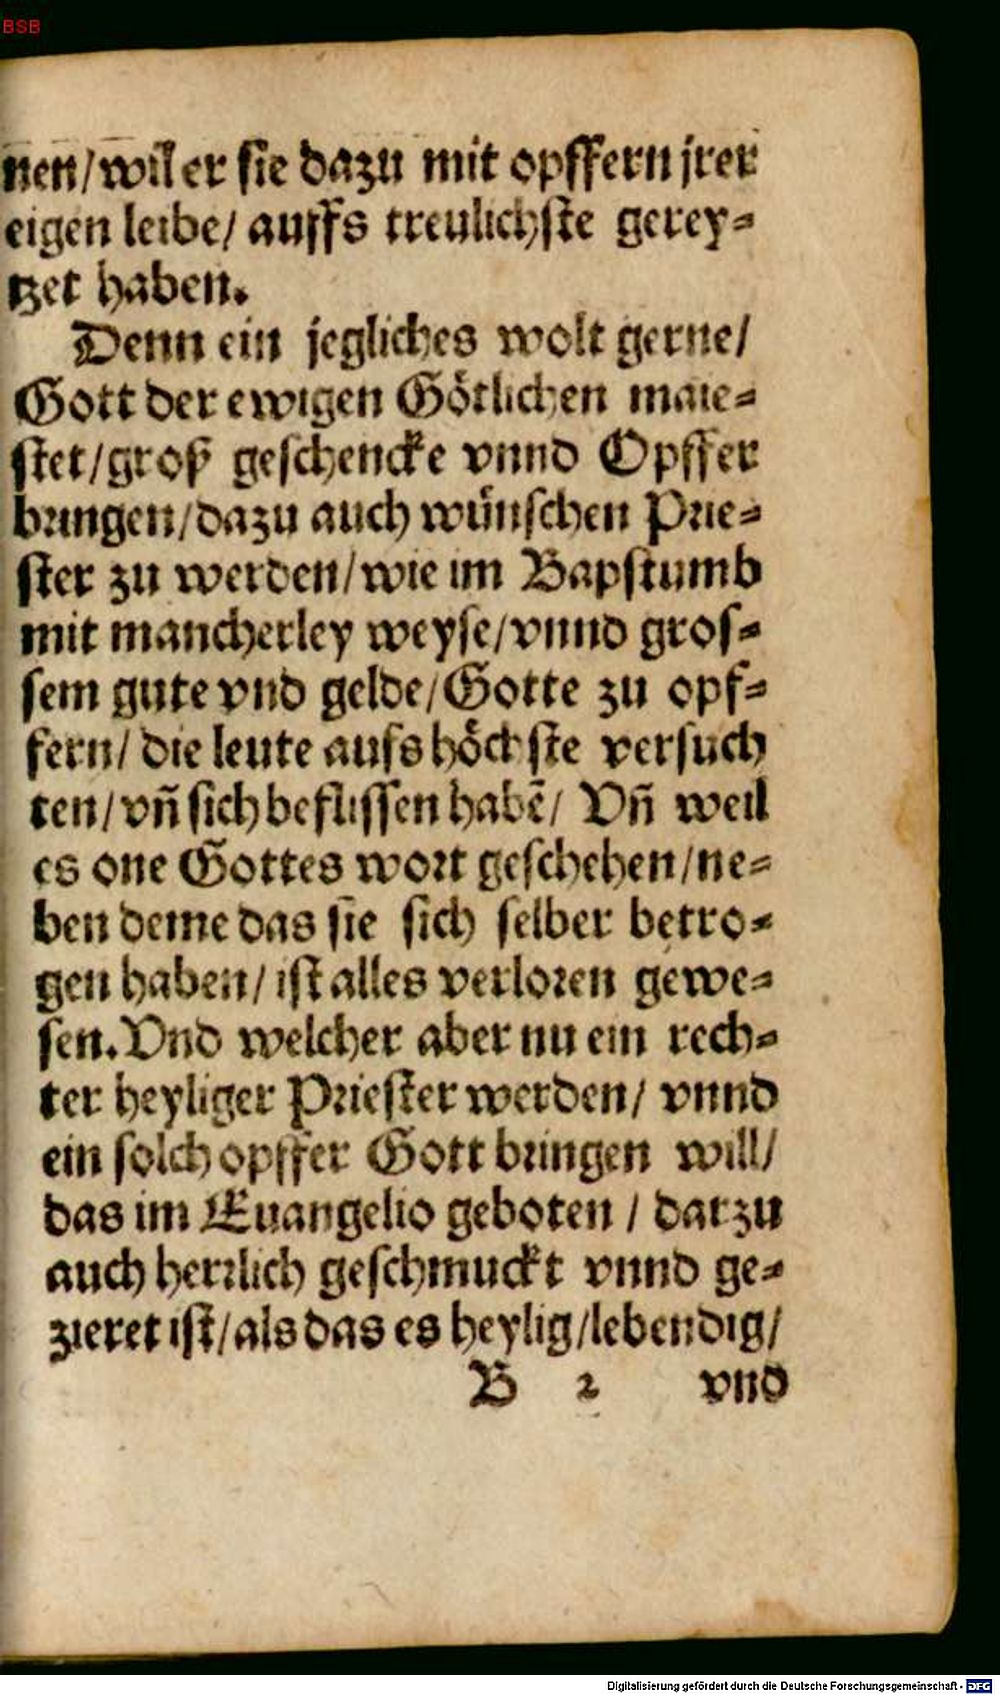 BSB
nen/wil er sie dazu mit opffern jrer
eigen leibe/ auffs treulichste gerey⸗
tzet haben.
Denn ein jegliches wolt gerne/
Gott der ewigen Götlichen maie⸗
stet/groß geschencke vnnd Opffer
bringen/dazu auch wünschen Prie⸗
ster zu werden/wie im Bapstumb
mit mancherley weyse/vnnd gros⸗
sem gute vnd gelde/Gotte zu opf⸗
fern/ die leute aufs höchste versuch
ten/vñ sich beflissen habẽ/ Vñ weil
es one Gottes wort geschehen/ne⸗
ben deme das sie sich selber betro⸗
gen haben/ ist alles verloren gewe⸗
sen. Vnd welcher aber nu ein rech⸗
ter heyliger Priester werden/ vnnd
ein solch opffer Gott bringen will/
das im Euangelio geboten / darzu
auch herrlich geschmuckt vnnd ge⸗
zieret ist/als das es heylig/lebendig/
B 2 vnd
Digitalisierung gefördert durch die Deutsche Forschungsgemeinschaft - DFG